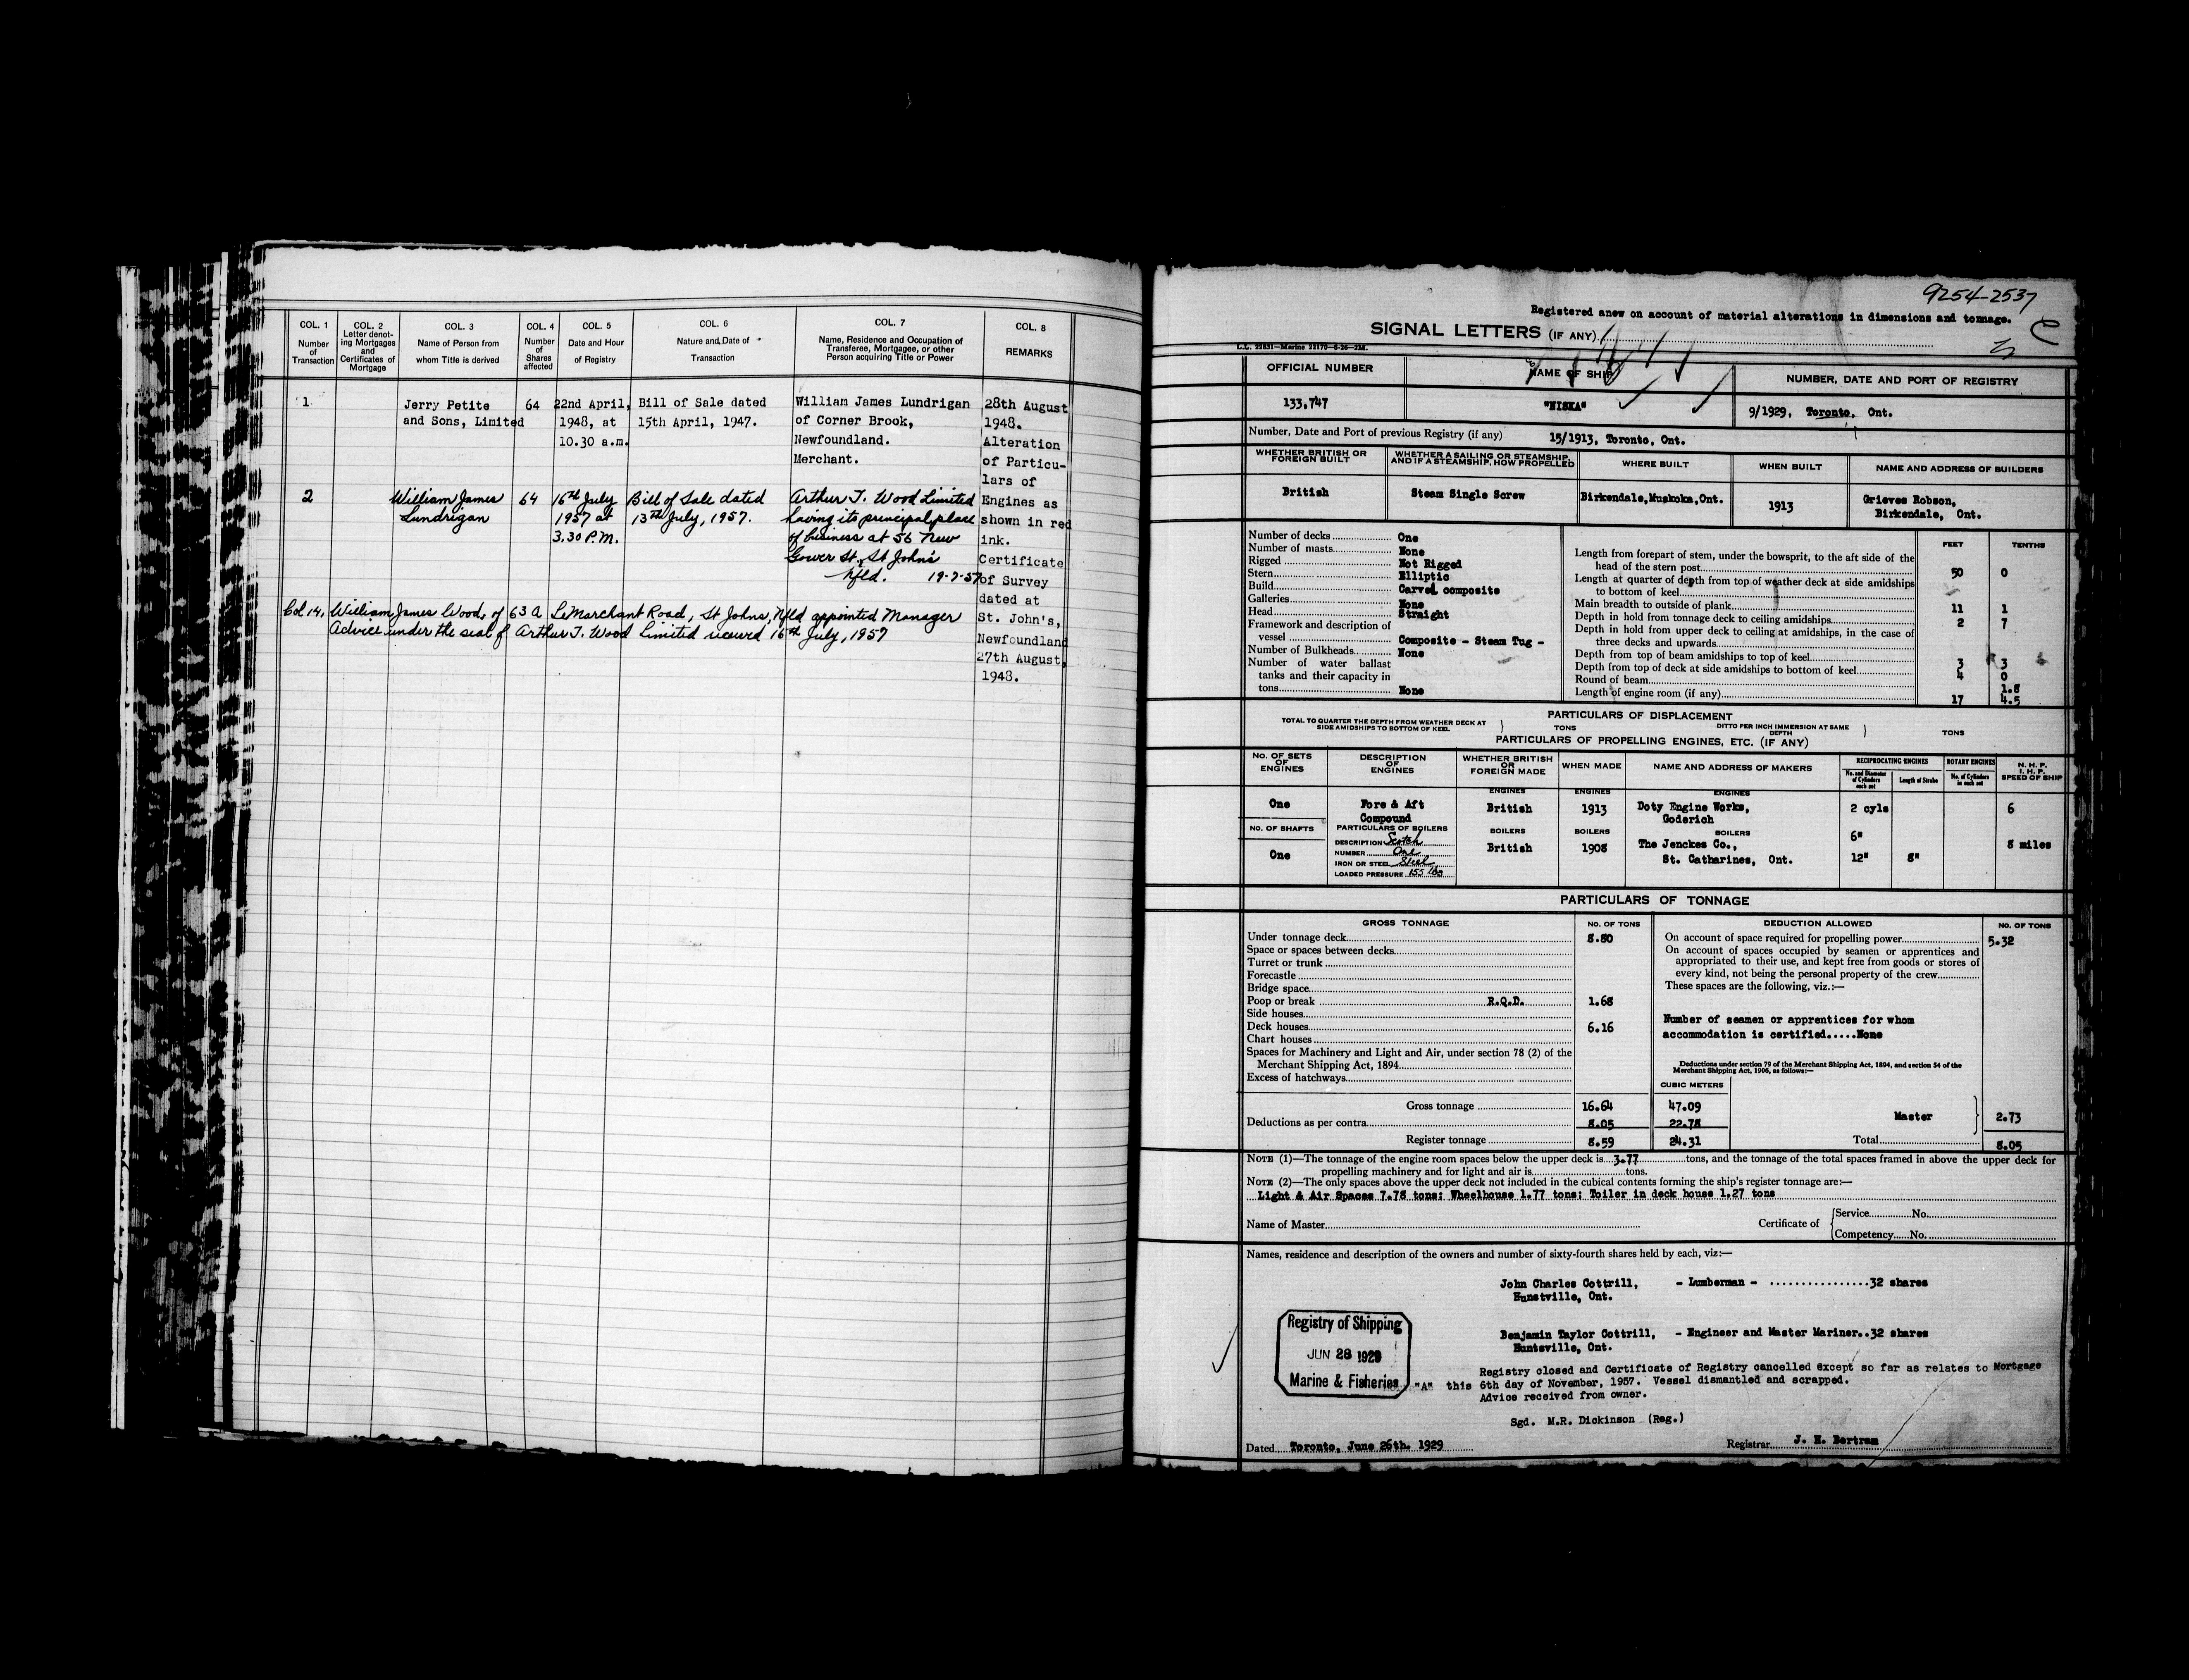 COL. 1 Number of Transaction
COL. 2 Letter denoting Mortgages and Certificates of Mortgage
COL. 3 Name of Person from whom Title is derived
COL. 4 Number of Shares affected
COL. 5 Date and Hour of Registry
COL. 6 Nature and Date of Transaction
COL. 7 Name, Residence and Occupation of Transferee, Mortgagee, or other Person acquiring Title or Power
COL. 8 REMARKS
1 Jerry Petite 64 22nd April, Bill of Sale dated William James Lundrigan 28th August
and Sons, Limited 1948, at 15th April, 1947. of Corner Brook, 1948.
10.30 a.m. Newfoundland. Alteration
Merchant. of Particu-
lars of
2 William James 64 16th July Bill of Sale dated Arthur T. Wood Limited Engines as
Lundrigan 1957 at 13th July, 1957. having its principal place shown in red
3.30 P.M. of business at 56 New ink.
Gower St., St John's Certificate
Nfld. 19-7-57 of Survey
dated at
Col 14, William James Wood, of 63A LeMarchant Road, St Johns, Nfld appointed Manager St. John's,
Advice under the seal of Arthur T. Wood Limited received 16th July, 1957 Newfoundland
27th August,
1948.
9254-2537
Registered anew on account of material alterations in dimensions and tonnage.
SIGNAL LETTERS (IF ANY)
L.L. 22831—Marine 22170—6-26—2M.
OFFICIAL NUMBER NAME OF SHIP NUMBER, DATE AND PORT OF REGISTRY
133,747 "NISKA" 9/1929, Toronto, Ont.
Number, Date and Port of previous Registry (if any) 15/1913, Toronto, Ont.
WHETHER BRITISH OR FOREIGN BUILT
WHETHER A SAILING OR STEAMSHIP, AND IF A STEAMSHIP, HOW PROPELLED
WHERE BUILT WHEN BUILT NAME AND ADDRESS OF BUILDERS
British Steam Single Screw Birkendale,Muskoka,Ont. 1913 Grieves Robson,
Birkendale, Ont.
Number of decks One
Number of masts None
Rigged Not Rigged
Stern Elliptic
Build Carvel composite
Galleries None
Head Straight
Framework and description of
vessel Composite - Steam Tug -
Number of Bulkheads None
Number of water ballast
tanks and their capacity in
tons None
FEET TENTHS
Length from forepart of stem, under the bowsprit, to the aft side of the
head of the stern post 50 0
Length at quarter of depth from top of weather deck at side amidships
to bottom of keel
Main breadth to outside of plank 11 1
Depth in hold from tonnage deck to ceiling amidships 2 7
Depth in hold from upper deck to ceiling at amidships, in the case of
three decks and upwards
Depth from top of beam amidships to top of keel 3 3
Depth from top of deck at side amidships to bottom of keel 4 0
Round of beam 1.8
Length of engine room (if any) 17 4.5
PARTICULARS OF DISPLACEMENT
TOTAL TO QUARTER THE DEPTH FROM WEATHER DECK AT SIDE AMIDSHIPS TO BOTTOM OF KEEL } TONS DITTO PER INCH IMMERSION AT SAME DEPTH } TONS
PARTICULARS OF PROPELLING ENGINES, ETC. (IF ANY)
No. OF SETS OF ENGINES
DESCRIPTION OF ENGINES
WHETHER BRITISH OR FOREIGN MADE
WHEN MADE
NAME AND ADDRESS OF MAKERS
RECIPROCATING ENGINES
No. and Diameter of Cylinders each set
Length of Stroke
ROTARY ENGINES
No. of Cylinders in each set
N. H. P.
I. H. P.
SPEED OF SHIP
ENGINES ENGINES ENGINES
One Fore & Aft British 1913 Doty Engine Works, 2 cyls 6
Compound Goderich
No. OF SHAFTS PARTICULARS OF BOILERS BOILERS BOILERS BOILERS 6"
DESCRIPTION Scotch
One NUMBER One British 1908 The Jenckes Co., 8 miles
IRON OR STEEL Steel St. Catharines, Ont. 12" 8"
LOADED PRESSURE 155 lbs
PARTICULARS OF TONNAGE
GROSS TONNAGE No. OF TONS
Under tonnage deck 8.80
Space or spaces between decks
Turret or trunk
Forecastle
Bridge space
Poop or break R.Q.D. 1.68
Side houses
Deck houses 6.16
Chart houses
Spaces for Machinery and Light and Air, under section 78 (2) of the
Merchant Shipping Act, 1894
Excess of hatchways
DEDUCTION ALLOWED No. OF TONS
On account of space required for propelling power 5.32
On account of spaces occupied by seamen or apprentices and
appropriated to their use, and kept free from goods or stores of
every kind, not being the personal property of the crew
These spaces are the following, viz.:—
Number of seamen or apprentices for whom
accommodation is certified.....None
Deductions under section 79 of the Merchant Shipping Act, 1894, and section 54 of the
Merchant Shipping Act, 1906, as follows:—
CUBIC METERS
Gross tonnage 16.64 47.09 Master } 2.73
Deductions as per contra 8.05 22.78
Register tonnage 8.59 24.31 Total 8.05
NOTE (1)—The tonnage of the engine room spaces below the upper deck is 3.77 tons, and the tonnage of the total spaces framed in above the upper deck for
propelling machinery and for light and air is tons.
NOTE (2)—The only spaces above the upper deck not included in the cubical contents forming the ship's register tonnage are:—
Light & Air Spaces 7.78 tons; Wheelhouse 1.77 tons; Toiler in deck house 1.27 tons
Name of Master Certificate of { Service No.
Competency No.
Names, residence and description of the owners and number of sixty-fourth shares held by each, viz:—
John Charles Cottrill, - Lumberman - ................32 shares
Hunstville, Ont.
Benjamin Taylor Cottrill, - Engineer and Master Mariner..32 shares
Huntsville, Ont.
Registry of Shipping
JUN 28 1929
Marine & Fisheries
Registry closed and Certificate of Registry cancelled except so far as relates to Mortgage
"A" this 6th day of November, 1957. Vessel dismantled and scrapped.
Advice received from owner.
Sgd. M.R. Dickinson (Reg.)
Dated Toronto, June 26th. 1929 Registrar J. H. Bertram